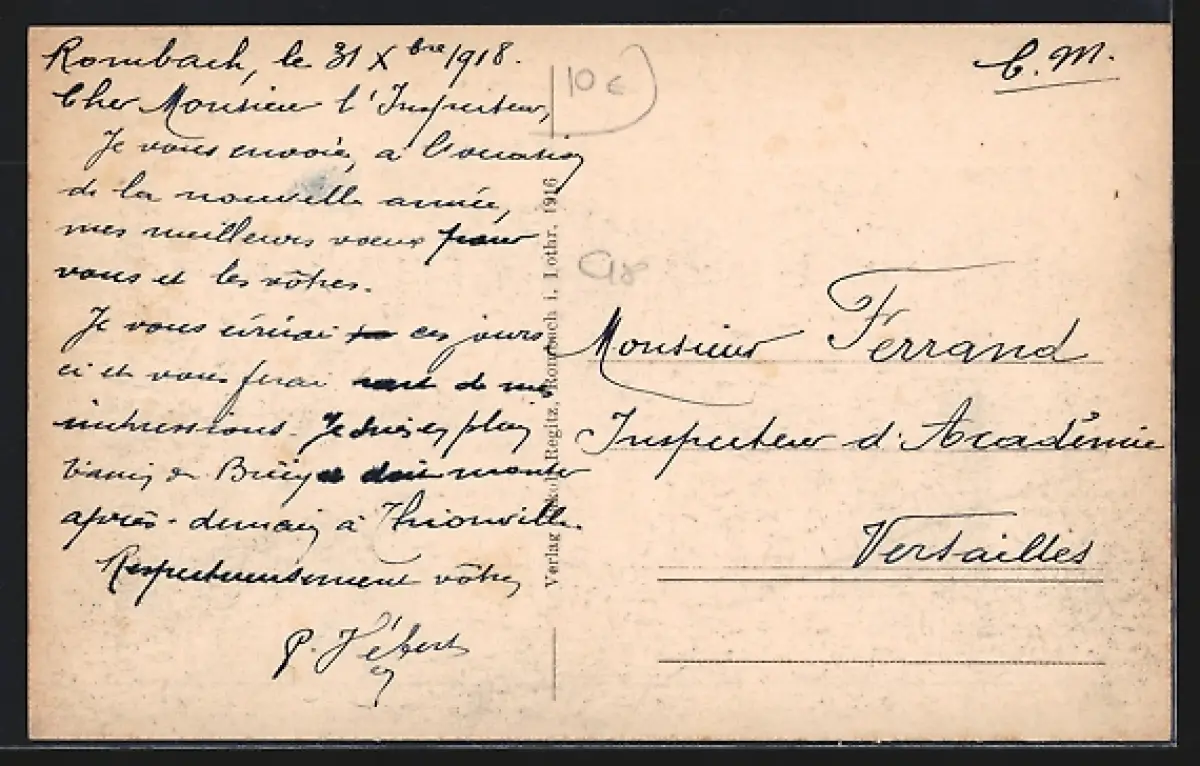 Rombach, le 31 Xbre 1918.
Cher Monsieur l'Inspecteur,
Je vous envoie, à l'occasion
de la nouvelle année,
mes meilleurs voeux pour
vous et les vôtres.
Je vous écrirai ces jours
ci et vous ferai de mes
impressions. Je suis en plein
bassin de Briey et dois monter
après-demain à Thionville.
Respectueusement vôtre,
P. Hébert
10 €
C18
Verlag Regitz, Rombach i. Lothr. 1916
C. M.
Monsieur Ferrand
Inspecteur d'Académie
Versailles